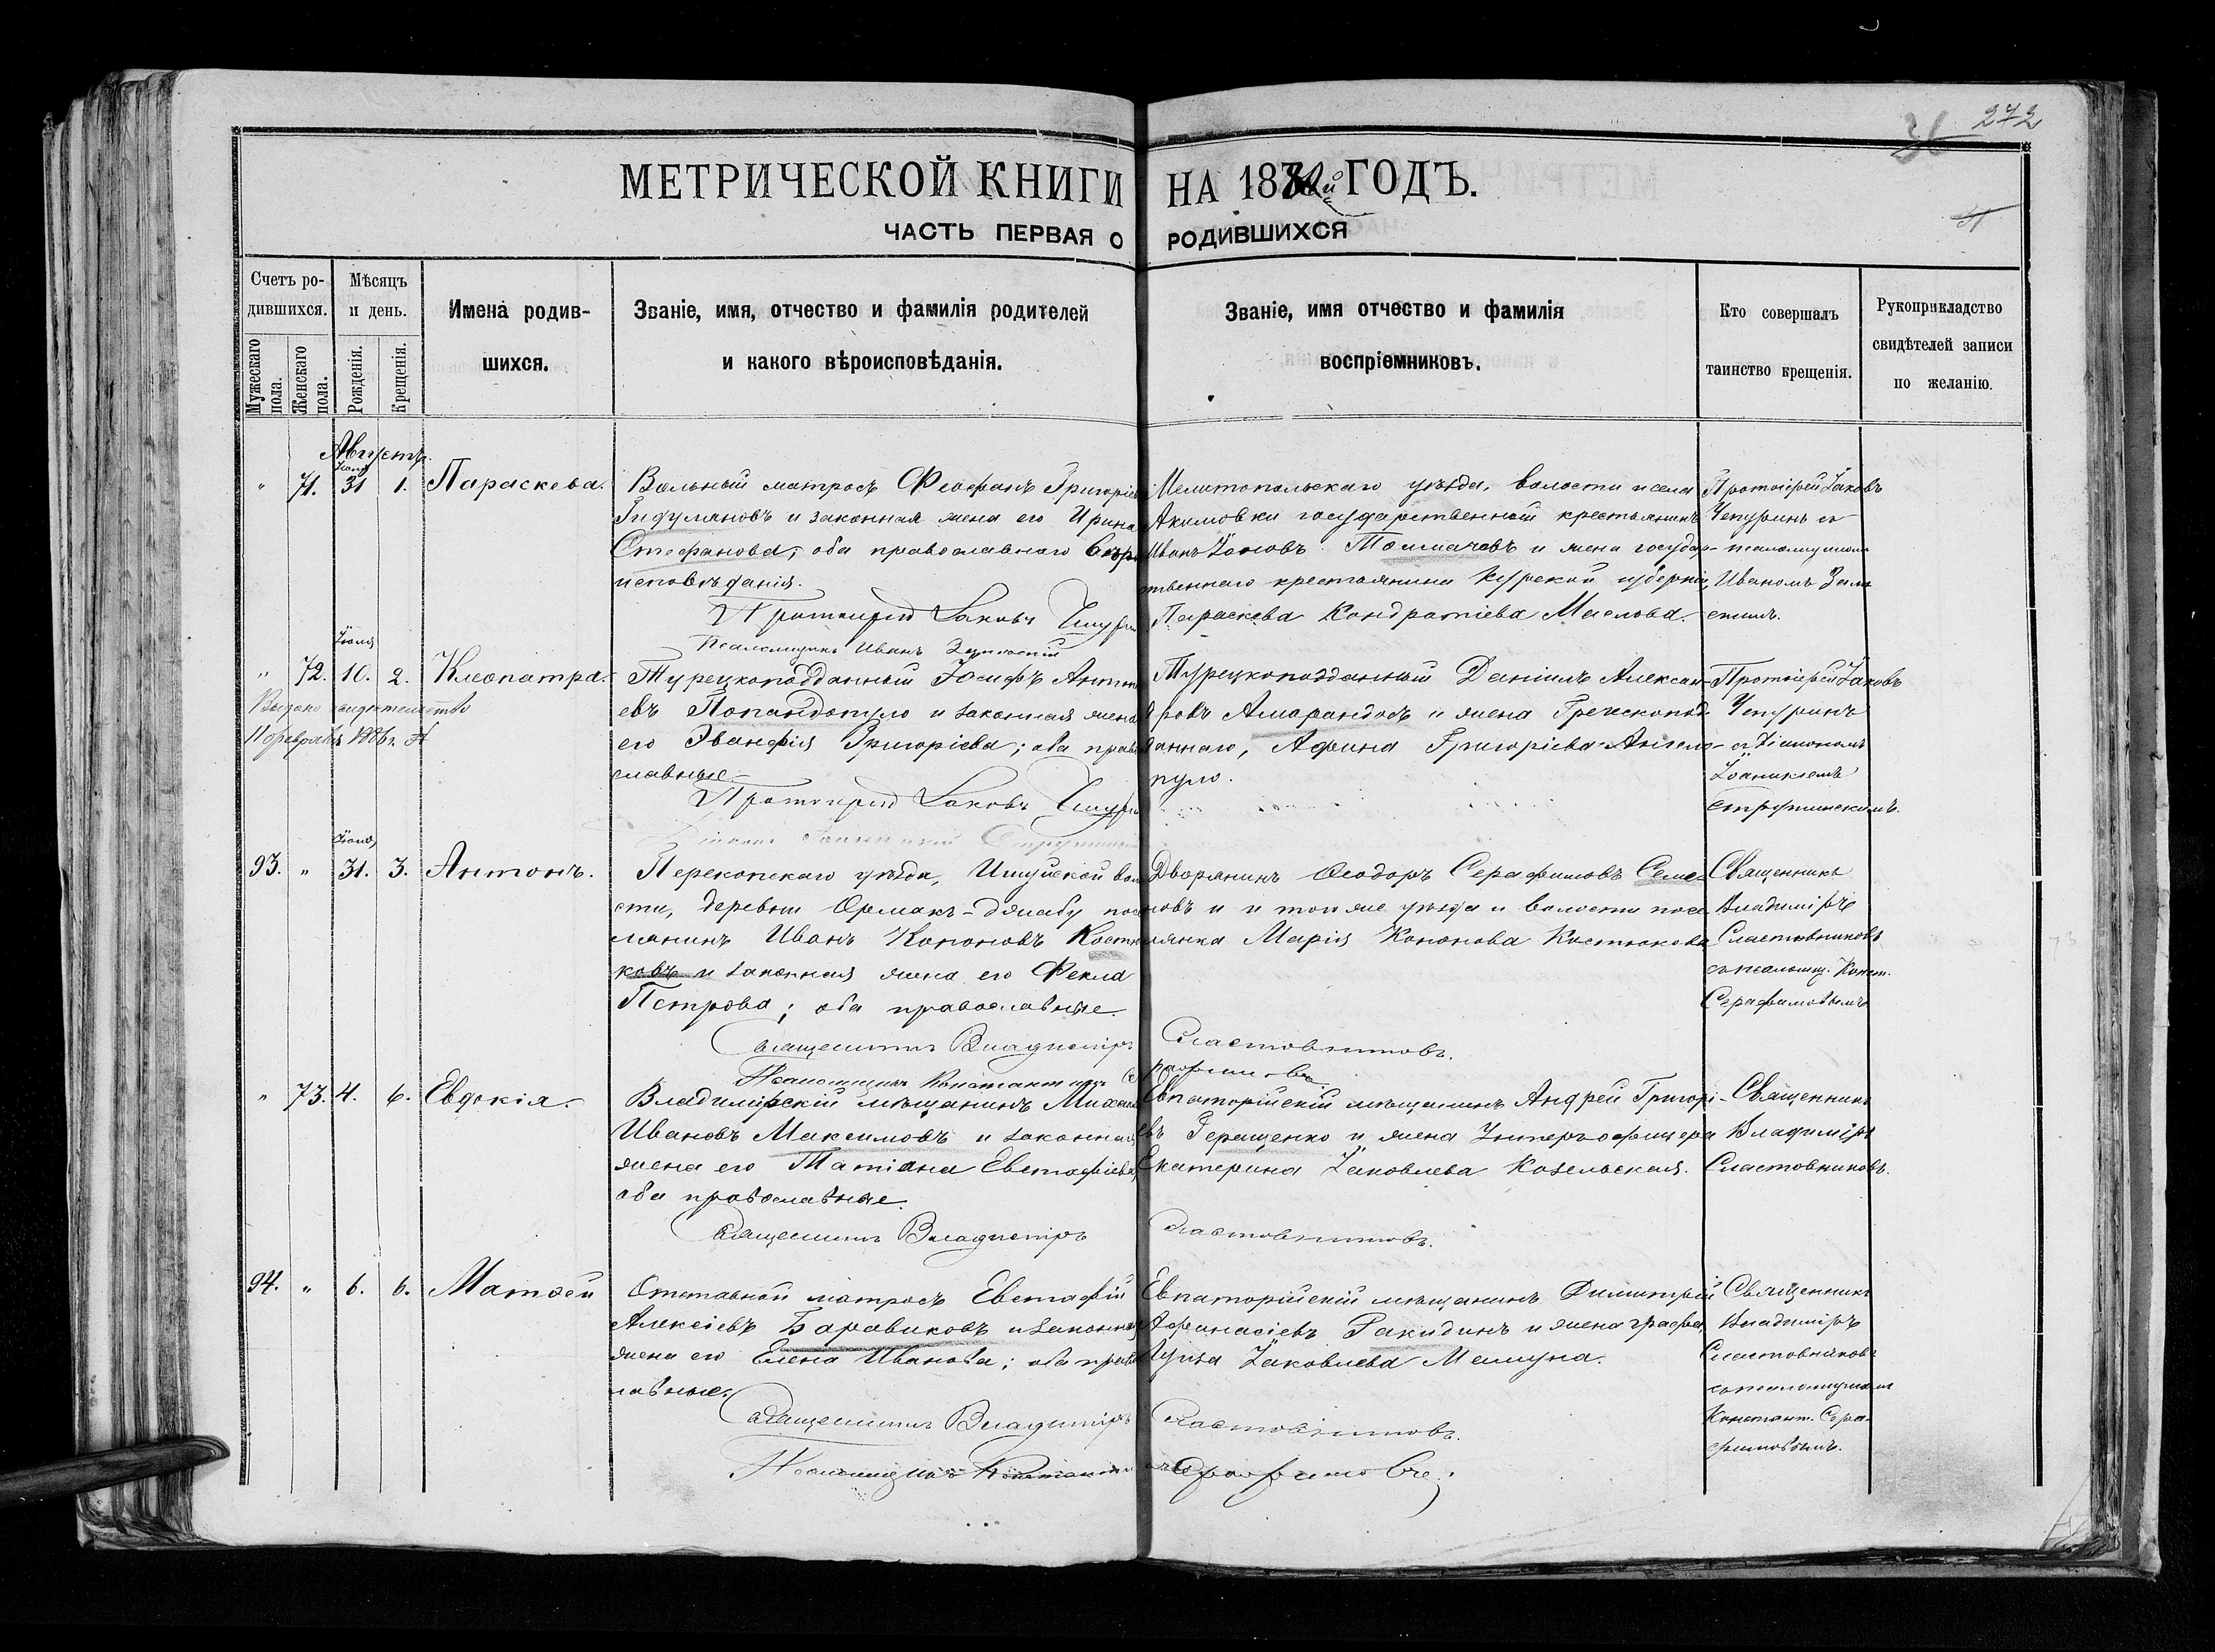 272
36
МЕТРИЧЕСКОЙ КНИГИ НА 1882й ГОДЪ.
ЧАСТЬ ПЕРВАЯ О РОДИВШИХСЯ
Счетъ ро-
дившихся.
Мужескаго пола.
Женскаго пола.
Мѣсяцъ
и день.
Рожденія.
Крещенія.
Имена родив-
шихся.
Званіе, имя, отчество и фамилія родителей
и какого вѣроисповѣданія.
Званіе, имя отчество и фамилія
воспріемниковъ.
Кто совершалъ
таинство крещенія.
Рукоприкладство
свидѣтелей записи
по желанію.
Августъ.
Іюля
" 71. 31 1. Параскева.
Вольный матросъ Феофанъ Григоріев
Гидуляновъ и законная жена его Ирина
Стефанова; оба православнаго вѣро
исповѣданія.
Протоіерей Іаковъ Чепурин
Псаломщикъ Иванъ
Мелитопольскаго уѣзда, волости и села
Акимовки государственный крестьянинъ
Иванъ Іоновъ Толмачевъ и жена государ-
твеннаго крестьянина Курской губерніи,
Параскева Кондратіева Маслова.
Протоіерей Іаковъ
Чепуринъ съ
псаломщикомъ
Иваномъ
Іюля
" 72. 10. 2. Клеопатра.
Выдано свидѣтельство
11 февраля 1886 г.
Турецкоподданный Іосифъ Антон
евъ Попандопуло и законная жена
его Эванфія Григоріева; оба право
славные.
Протоіерей Іаковъ Чепурин
Діаконъ Іоанникій
Турецкоподданный Даніилъ Алексан-
дровъ Амарандосъ и жена Греческопод-
даннаго, Афина Григоріева Ангело-
пуло.
Протоіерей Іаковъ
Чепуринъ
съ Діакономъ
Іоанникіемъ
Іюля
93. " 31. 3. Антонъ.
Перекопскаго уѣзда, Ишуньской вол
сти, деревни Ормакъ-Джабу посе
лянинъ Иванъ Кононовъ Костю
ковъ и законная жена его Фекла
Петрова; оба православные.
Священникъ Владиміръ Сластовниковъ.
Псаломщикъ Константинъ Серафимовъ
Дворянинъ Ѳеодоръ Серафимовъ Семе-
новъ и и той же уѣзда и волости посе-
лянка Марія Кононова Костюкова
Священникъ
Владиміръ
Сластовниковъ
съ псаломщ. Конст.
Серафимовымъ
" 73. 4. 6. Евдокія.
Владимірскій мѣщанинъ Михаил
Ивановъ Максимовъ и законная
жена его Татіана Евстафіева,
оба православные.
Священникъ Владиміръ Сластовниковъ.
Евпаторійскій мѣщанинъ Андрей Григорі-
евъ Геращенко и жена Унтеръ-офицера
Екатерина Іаковлева Козельская.
Священникъ
Владиміръ
Сластовниковъ.
94. " 6. 6. Матѳей
Отставной матросъ Евстафій
Алексіевъ Боровиковъ и законная
жена его Елена Иванова; оба право
лавные.
Священникъ Владиміръ Сластовниковъ.
Псаломщикъ Константинъ Серафимовъ.
Евпаторійскій мѣщанинъ Димитрій
Афанасіевъ Ракидинъ и жена графа,
Луиза Іаковлева Мамуна.
Священникъ
Владиміръ
Сластовниковъ
съ псаломщикомъ
Констант. Сера-
фимовымъ.